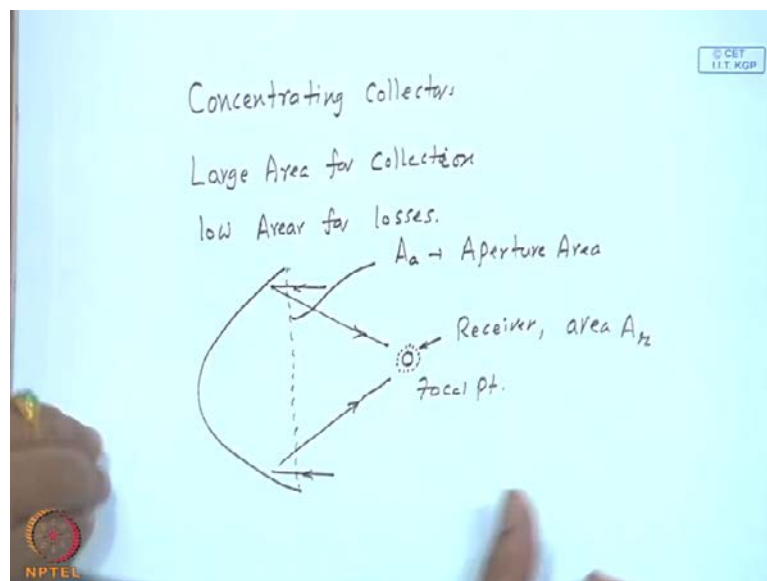 © CET
I.I.T. KGP
Concentrating Collectors
Large Area for Collection
low Arear for losses.
Aa → Aperture Area
Receiver, area Ar
Focal pt.
NPTEL